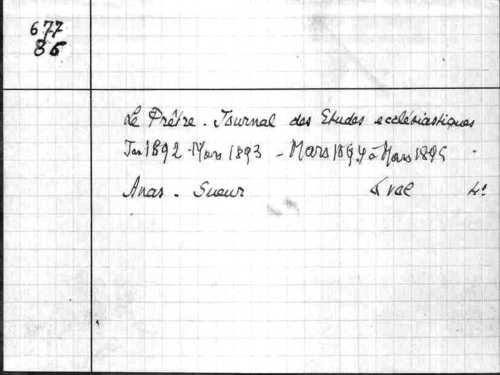 677
86
Le Prêtre. Journal des Etudes ecclésiastiques
Jer 1892 - Mars 1893 - Mars 1894 à Mars 1895
Arras. Sueur vol 4°